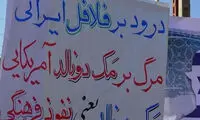 درود بر فلافل ایرانی
مرگ بر مک دونالد آمریکائی
مک دونالد یعنی نفوذ فرهنگی